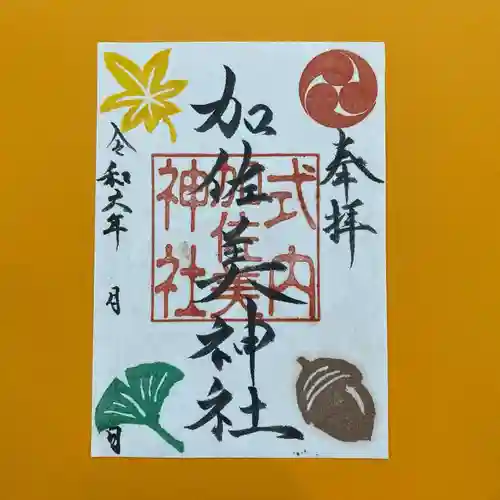 奉拝
加佐美神社
式内
加佐美
神社
令和六年
月
日